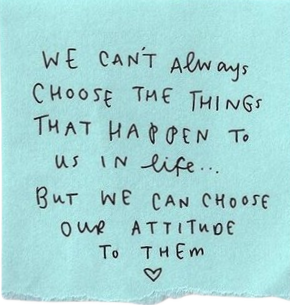 WE CAN'T Always
CHOOSE THE THINGS
THAT HAPPEN To
US IN life...
BUT WE CAN CHOOSE
OUR ATTITUDE
To THEM